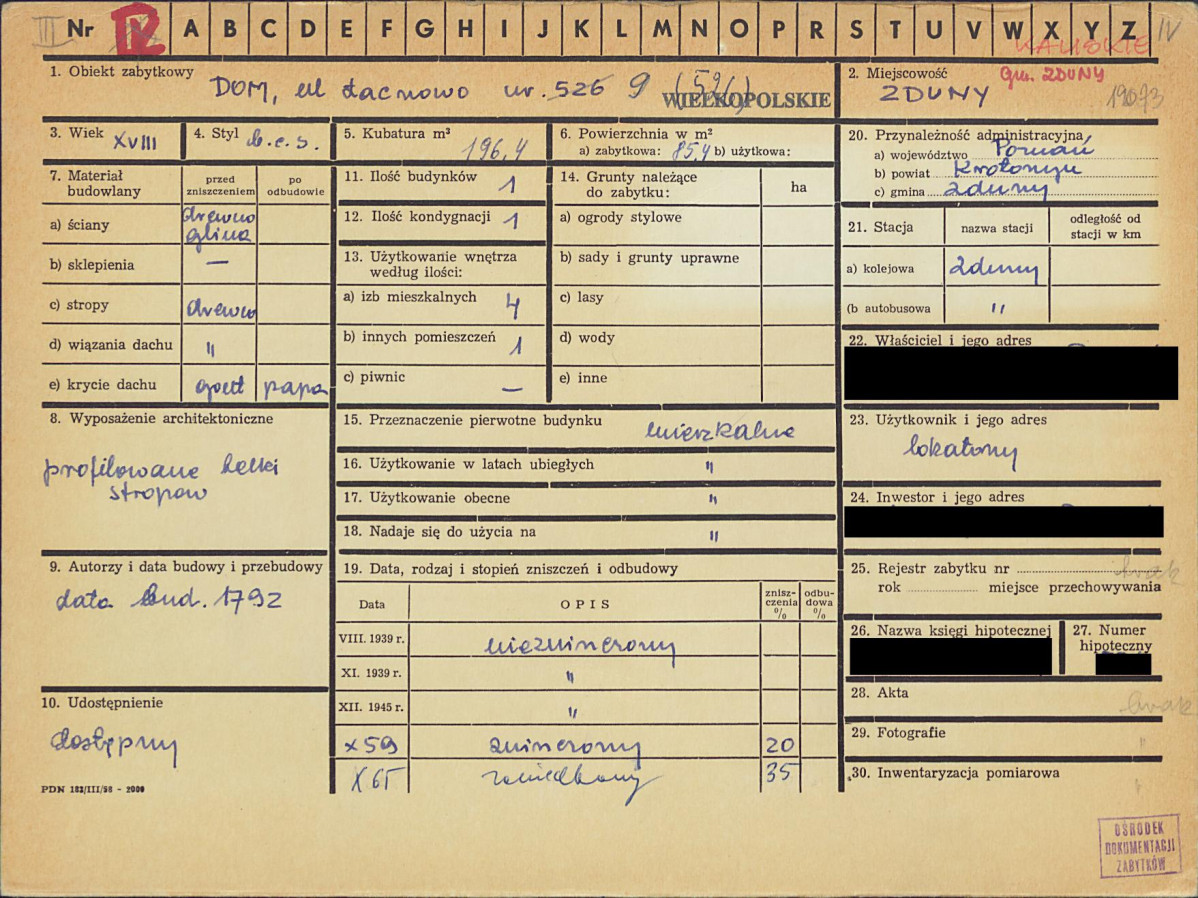 III Nr IV A B C D E F G H I J K L M N O P R S T U V W X Y Z IV
KALISKIE
1. Obiekt zabytkowy
DOM, ul Łacnowo nr. 526 9 (526)
WIELKOPOLSKIE
2. Miejscowość
Gm. ZDUNY
ZDUNY
3. Wiek XVIII
4. Styl b.c.s.
5. Kubatura m³
196,4
6. Powierzchnia w m²
a) zabytkowa: 85,4 b) użytkowa:
20. Przynależność administracyjna
a) województwo Poznań
b) powiat Krotoszyn
c) gmina Zduny
7. Materiał budowlany
przed zniszczeniem
po odbudowie
a) ściany
drewno
glina
b) sklepienia —
c) stropy drewno
d) wiązania dachu "
e) krycie dachu gont papa
11. Ilość budynków 1
12. Ilość kondygnacji 1
13. Użytkowanie wnętrza
według ilości:
a) izb mieszkalnych 4
b) innych pomieszczeń 1
c) piwnic —
14. Grunty należące
do zabytku:
ha
a) ogrody stylowe
b) sady i grunty uprawne
c) lasy
d) wody
e) inne
21. Stacja
nazwa stacji
odległość od
stacji w km
a) kolejowa Zduny
(b autobusowa "
22. Właściciel i jego adres
8. Wyposażenie architektoniczne
profilowane belki
stropow
15. Przeznaczenie pierwotne budynku mieszkalne
16. Użytkowanie w latach ubiegłych "
17. Użytkowanie obecne "
18. Nadaje się do użycia na "
23. Użytkownik i jego adres
lokatorzy
24. Inwestor i jego adres
9. Autorzy i data budowy i przebudowy
data bud. 1792
19. Data, rodzaj i stopień zniszczeń i odbudowy
Data
OPIS
znisz-
czenia
%
odbu-
dowa
%
VIII. 1939 r. niezniszczony
XI. 1939 r. "
XII. 1945 r. "
X 59 zniszczony 20
X 65 zaniedbany 35
25. Rejestr zabytku nr brak
rok miejsce przechowywania
26. Nazwa księgi hipotecznej
27. Numer
hipoteczny
10. Udostępnienie
dostępny
28. Akta brak
29. Fotografie "
30. Inwentaryzacja pomiarowa "
PDN 182/III/58 - 2000
OŚRODEK
DOKUMENTACJI
ZABYTKÓW